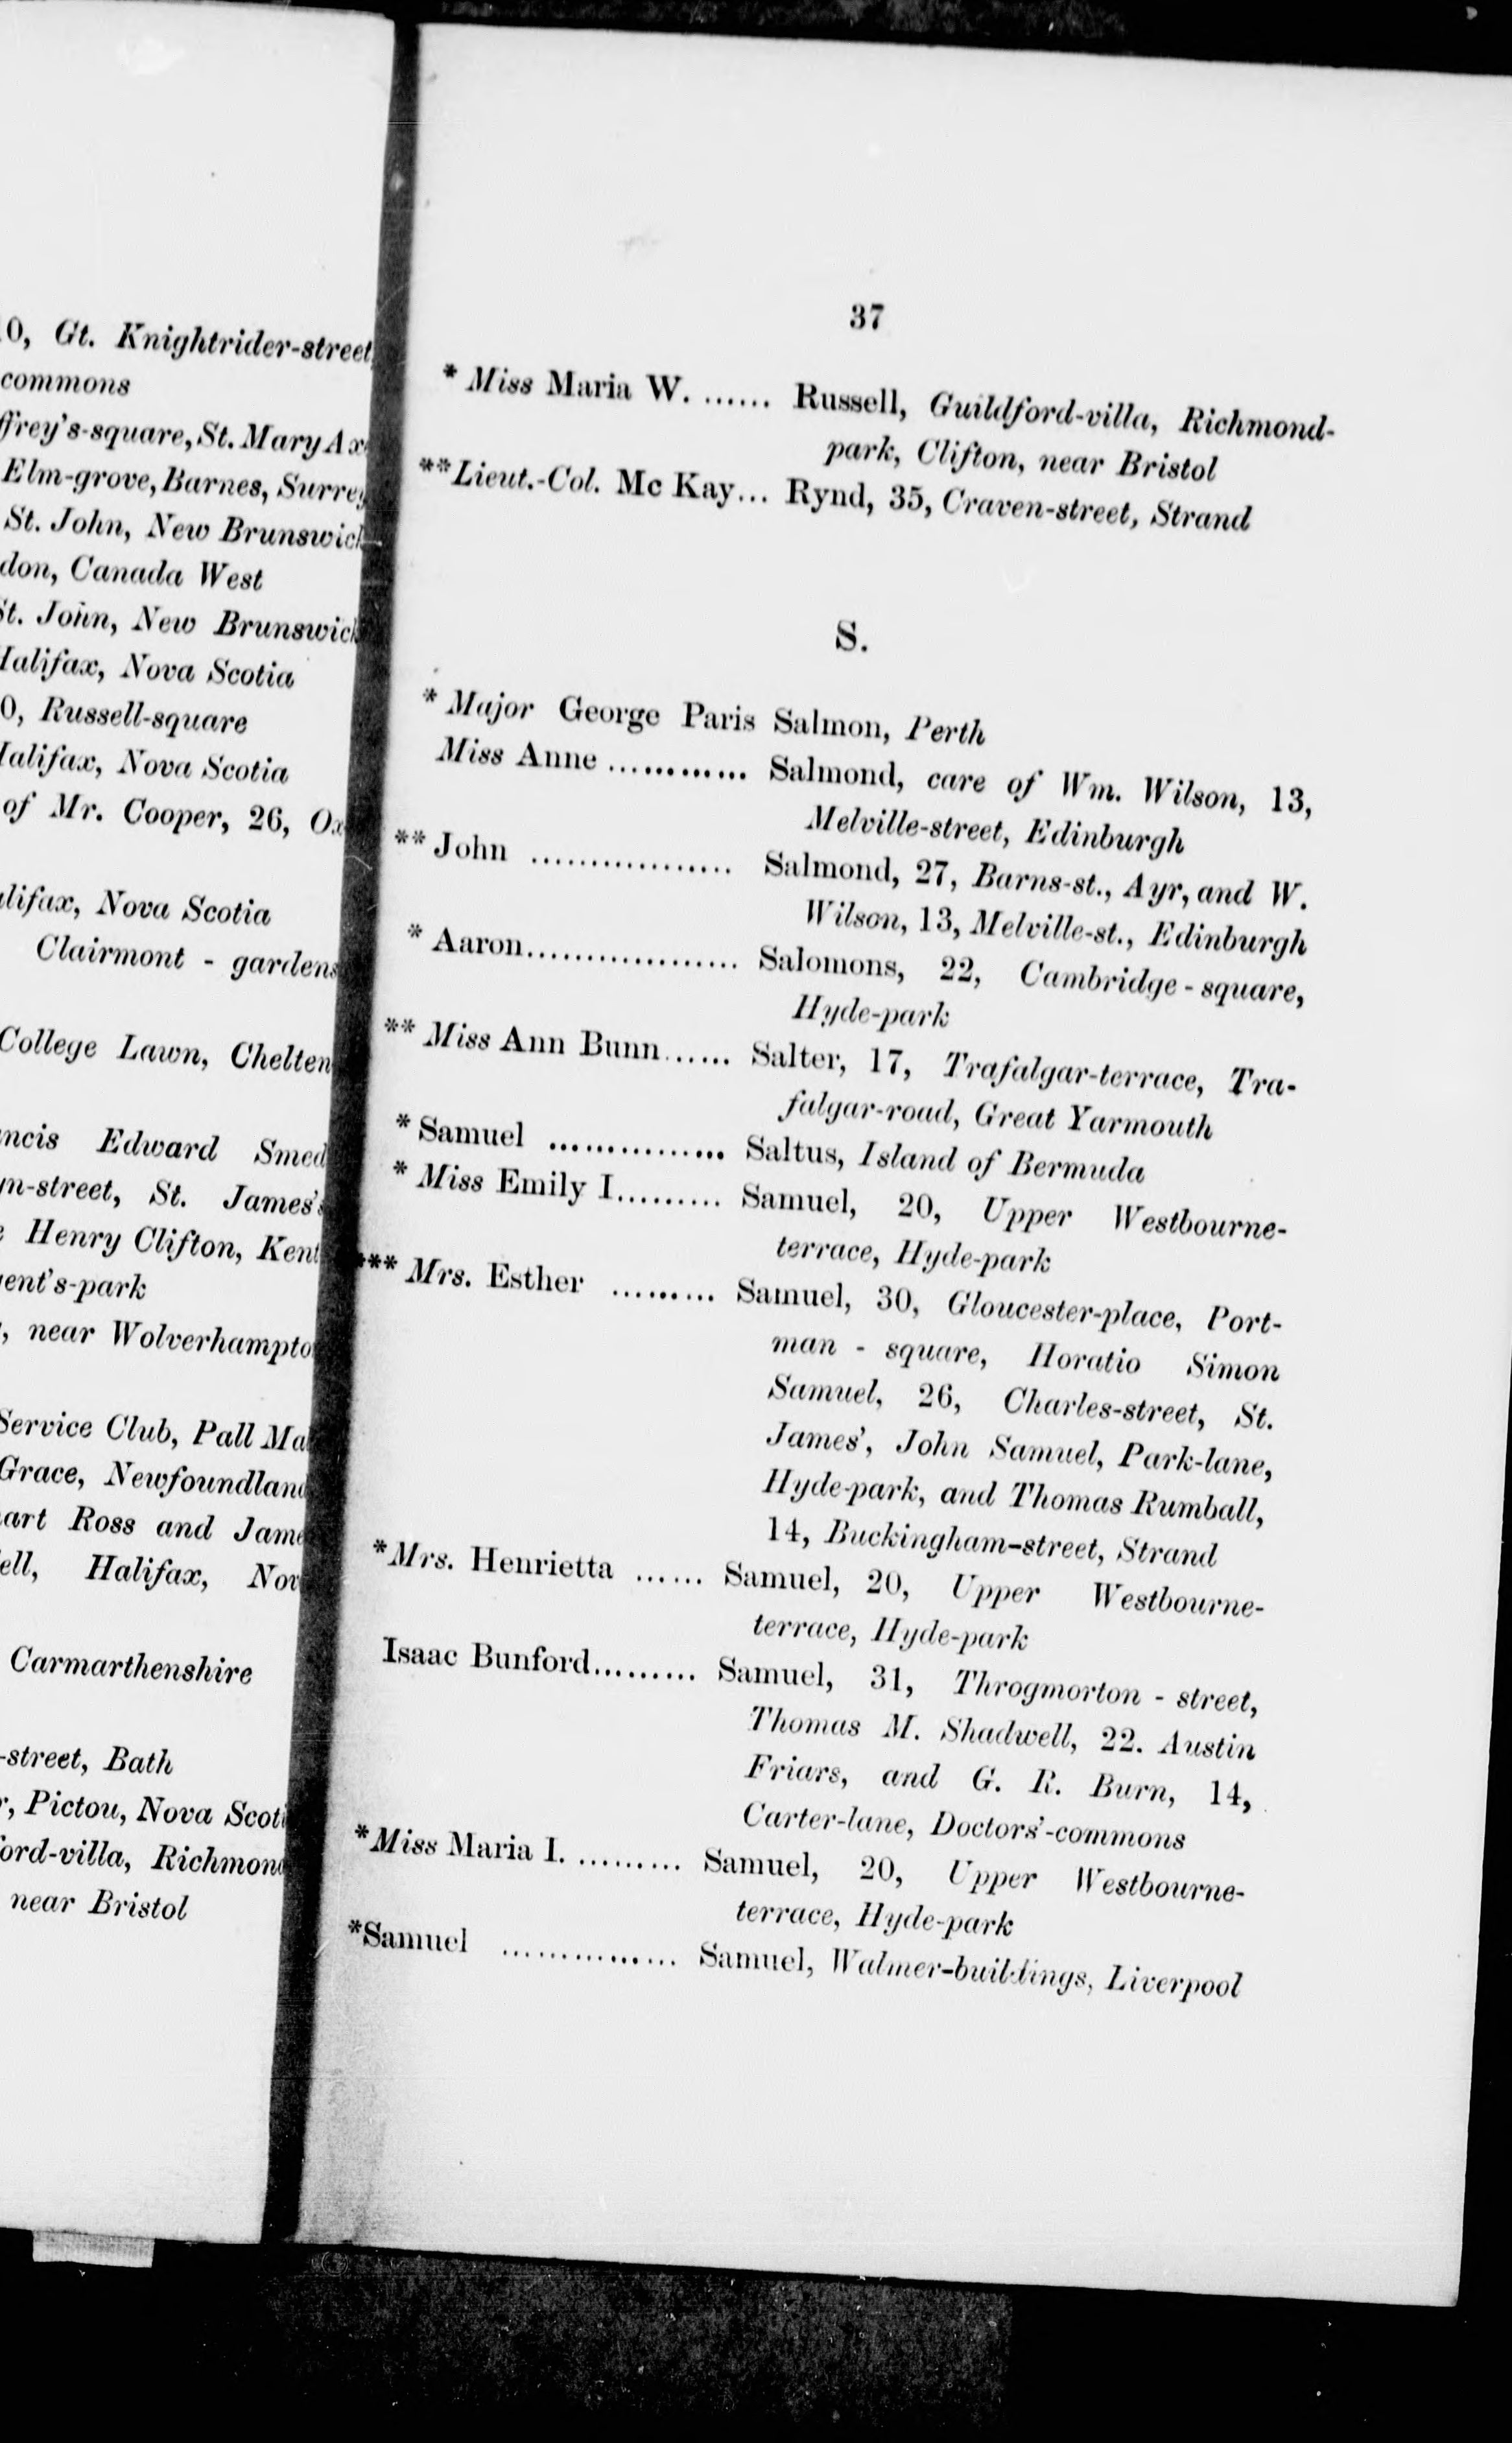 0, Gt. Knightrider-street,
commons
ffrey's-square, St. Mary Ax
Elm-grove, Barnes, Surrey
St. John, New Brunswick
don, Canada West
St. John, New Brunswick
Halifax, Nova Scotia
0, Russell-square
Halifax, Nova Scotia
of Mr. Cooper, 26, Ox
alifax, Nova Scotia
Clairmont - gardens
College Lawn, Chelten
ncis Edward Smed
yn-street, St. James's
e Henry Clifton, Kent
gent's-park
, near Wolverhampto
Service Club, Pall Mal
Grace, Newfoundland
art Ross and Jame
ell, Halifax, Nov
Carmarthenshire
-street, Bath
r, Pictou, Nova Scoti
ford-villa, Richmond
near Bristol
37
* Miss Maria W. ...... Russell, Guildford-villa, Richmond-
park, Clifton, near Bristol
**Lieut.-Col. Mc Kay... Rynd, 35, Craven-street, Strand
S.
* Major George Paris Salmon, Perth
Miss Anne ............ Salmond, care of Wm. Wilson, 13,
Melville-street, Edinburgh
** John ................. Salmond, 27, Barns-st., Ayr, and W.
Wilson, 13, Melville-st., Edinburgh
* Aaron.................. Salomons, 22, Cambridge - square,
Hyde-park
** Miss Ann Bunn...... Salter, 17, Trafalgar-terrace, Tra-
falgar-road, Great Yarmouth
* Samuel ............... Saltus, Island of Bermuda
* Miss Emily I......... Samuel, 20, Upper Westbourne-
terrace, Hyde-park
*** Mrs. Esther ......... Samuel, 30, Gloucester-place, Port-
man - square, Horatio Simon
Samuel, 26, Charles-street, St.
James', John Samuel, Park-lane,
Hyde-park, and Thomas Rumball,
14, Buckingham-street, Strand
*Mrs. Henrietta ...... Samuel, 20, Upper Westbourne-
terrace, Hyde-park
Isaac Bunford......... Samuel, 31, Throgmorton - street,
Thomas M. Shadwell, 22. Austin
Friars, and G. R. Burn, 14,
Carter-lane, Doctors'-commons
*Miss Maria I. ......... Samuel, 20, Upper Westbourne-
terrace, Hyde-park
*Samuel ............... Samuel, Walmer-buildings, Liverpool